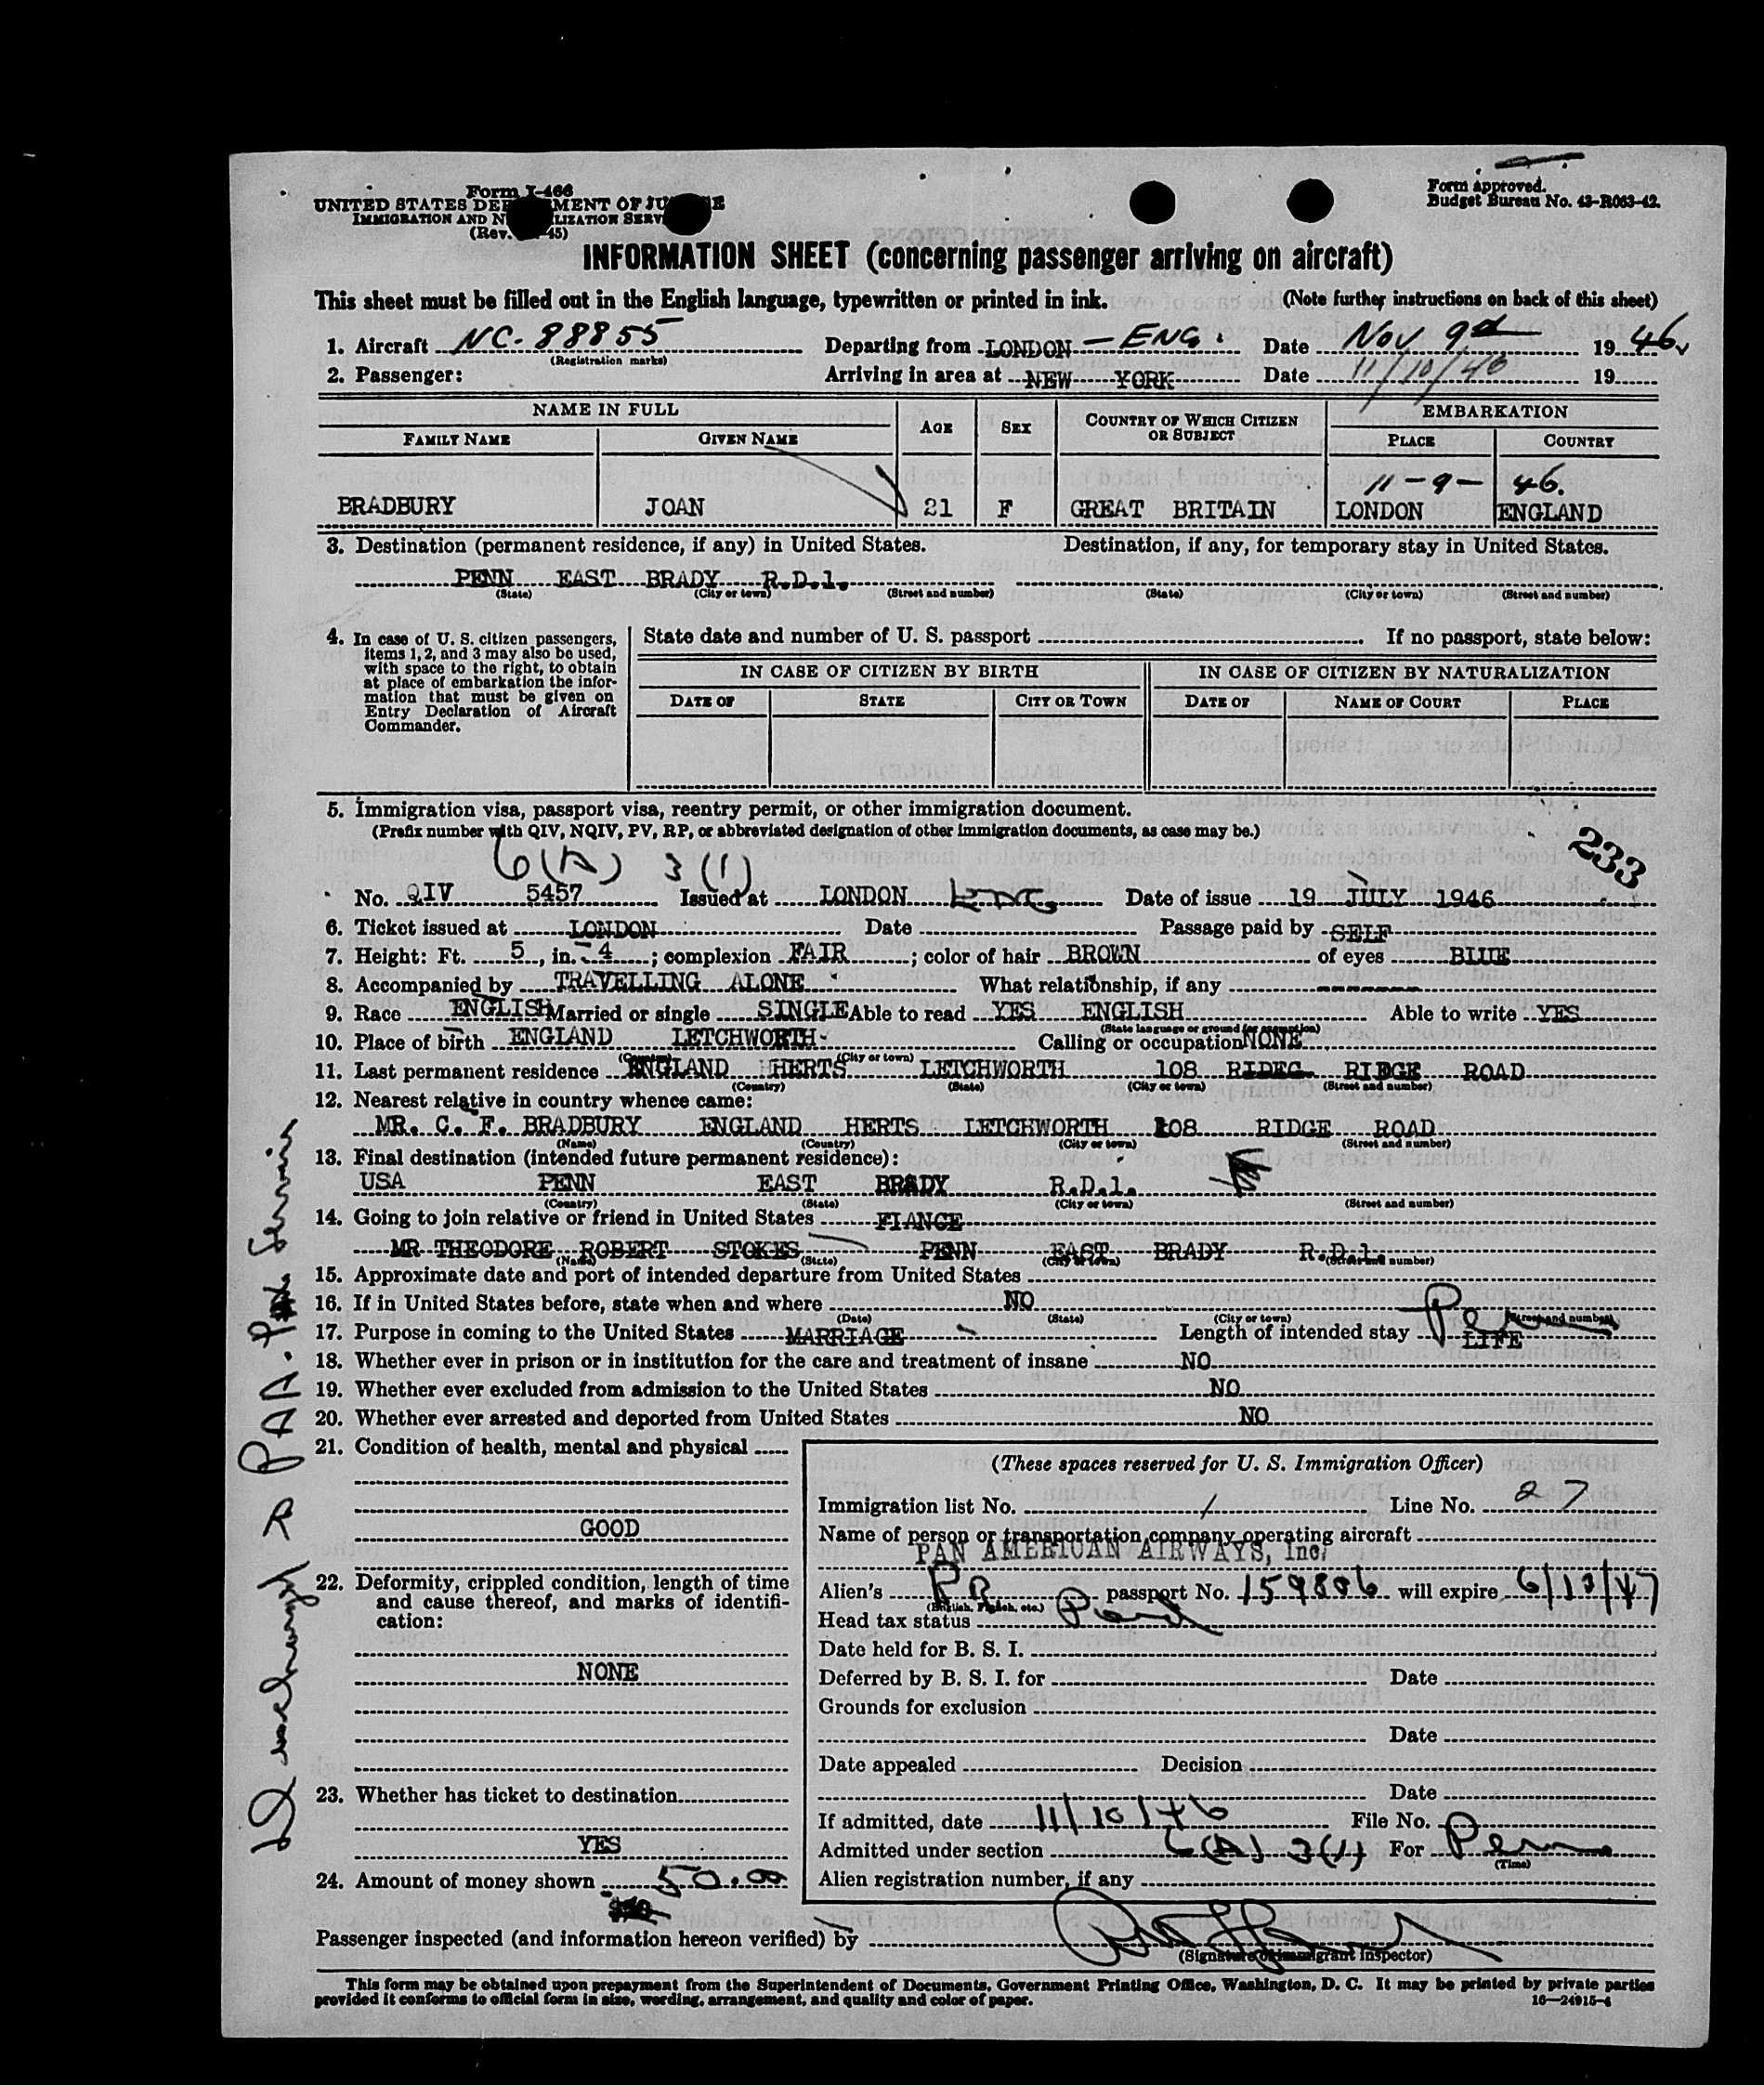 Form I-466
UNITED STATES DEPARTMENT OF JUSTICE
IMMIGRATION AND NATURALIZATION SERVICE
(Rev. 45)
Form approved.
Budget Bureau No. 43-R063-42.
INFORMATION SHEET (concerning passenger arriving on aircraft)
This sheet must be filled out in the English language, typewritten or printed in ink. (Note further instructions on back of this sheet)
1. Aircraft NC-88855 Departing from LONDON - ENG. Date Nov 9th 1946
(Registration marks)
2. Passenger: Arriving in area at NEW YORK Date 11/10/46 19
NAME IN FULL AGE SEX COUNTRY OF WHICH CITIZEN OR SUBJECT EMBARKATION
FAMILY NAME GIVEN NAME PLACE COUNTRY
11-9-46.
BRADBURY JOAN 21 F GREAT BRITAIN LONDON ENGLAND
3. Destination (permanent residence, if any) in United States. Destination, if any, for temporary stay in United States.
PENN EAST BRADY R.D.1.
(State) (City or town) (Street and number) (State) (City or town) (Street and number)
4. In case of U. S. citizen passengers, items 1, 2, and 3 may also be used, with space to the right, to obtain at place of embarkation the information that must be given on Entry Declaration of Aircraft Commander.
State date and number of U. S. passport If no passport, state below:
IN CASE OF CITIZEN BY BIRTH IN CASE OF CITIZEN BY NATURALIZATION
DATE OF STATE CITY OR TOWN DATE OF NAME OF COURT PLACE
5. Immigration visa, passport visa, reentry permit, or other immigration document.
(Prefix number with QIV, NQIV, PV, RP, or abbreviated designation of other immigration documents, as case may be.)
233
6(A) 3(1)
No. QIV 5457 Issued at LONDON ENG. Date of issue 19 JULY 1946
6. Ticket issued at LONDON Date Passage paid by SELF
7. Height: Ft. 5, in. 4; complexion FAIR; color of hair BROWN of eyes BLUE
8. Accompanied by TRAVELLING ALONE What relationship, if any
9. Race ENGLISH Married or single SINGLE Able to read YES ENGLISH Able to write YES
(State language or ground for exemption)
10. Place of birth ENGLAND LETCHWORTH Calling or occupation NONE
(Country) (City or town)
11. Last permanent residence ENGLAND HERTS LETCHWORTH 108 RIDEG RIDGE ROAD
(Country) (State) (City or town) (Street and number)
12. Nearest relative in country whence came:
MR. C. F. BRADBURY ENGLAND HERTS LETCHWORTH 108 RIDGE ROAD
(Name) (Country) (City or town) (Street and number)
13. Final destination (intended future permanent residence):
USA PENN EAST BRADY R.D.1.
(Country) (State) (City or town) (Street and number)
14. Going to join relative or friend in United States FIANCE
MR THEODORE ROBERT STOKES PENN EAST BRADY R.D.1.
(Name) (State) (City or town) (Street and number)
15. Approximate date and port of intended departure from United States
16. If in United States before, state when and where NO
(Date) (State) (City or town) (Street and number)
17. Purpose in coming to the United States MARRIAGE Length of intended stay Perm LIFE
18. Whether ever in prison or in institution for the care and treatment of insane NO
19. Whether ever excluded from admission to the United States NO
20. Whether ever arrested and deported from United States NO
21. Condition of health, mental and physical
GOOD
22. Deformity, crippled condition, length of time and cause thereof, and marks of identification:
NONE
23. Whether has ticket to destination
YES
24. Amount of money shown 50.00
(These spaces reserved for U. S. Immigration Officer)
Immigration list No. 1 Line No. 27
Name of person or transportation company operating aircraft
PAN AMERICAN AIRWAYS, Inc.
Alien's passport No. 159806 will expire 6/13/47
(British, French, etc.)
Head tax status Paid
Date held for B. S. I.
Deferred by B. S. I. for Date
Grounds for exclusion
Date
Date appealed Decision
Date
If admitted, date 11/10/46 File No.
Admitted under section 6(A) 3(1) For Perm
(Time)
Alien registration number, if any
Passenger inspected (and information hereon verified) by
(Signature of immigrant inspector)
This form may be obtained upon prepayment from the Superintendent of Documents, Government Printing Office, Washington, D. C. It may be printed by private parties
provided it conforms to official form in size, wording, arrangement, and quality and color of paper.
16—24915-4